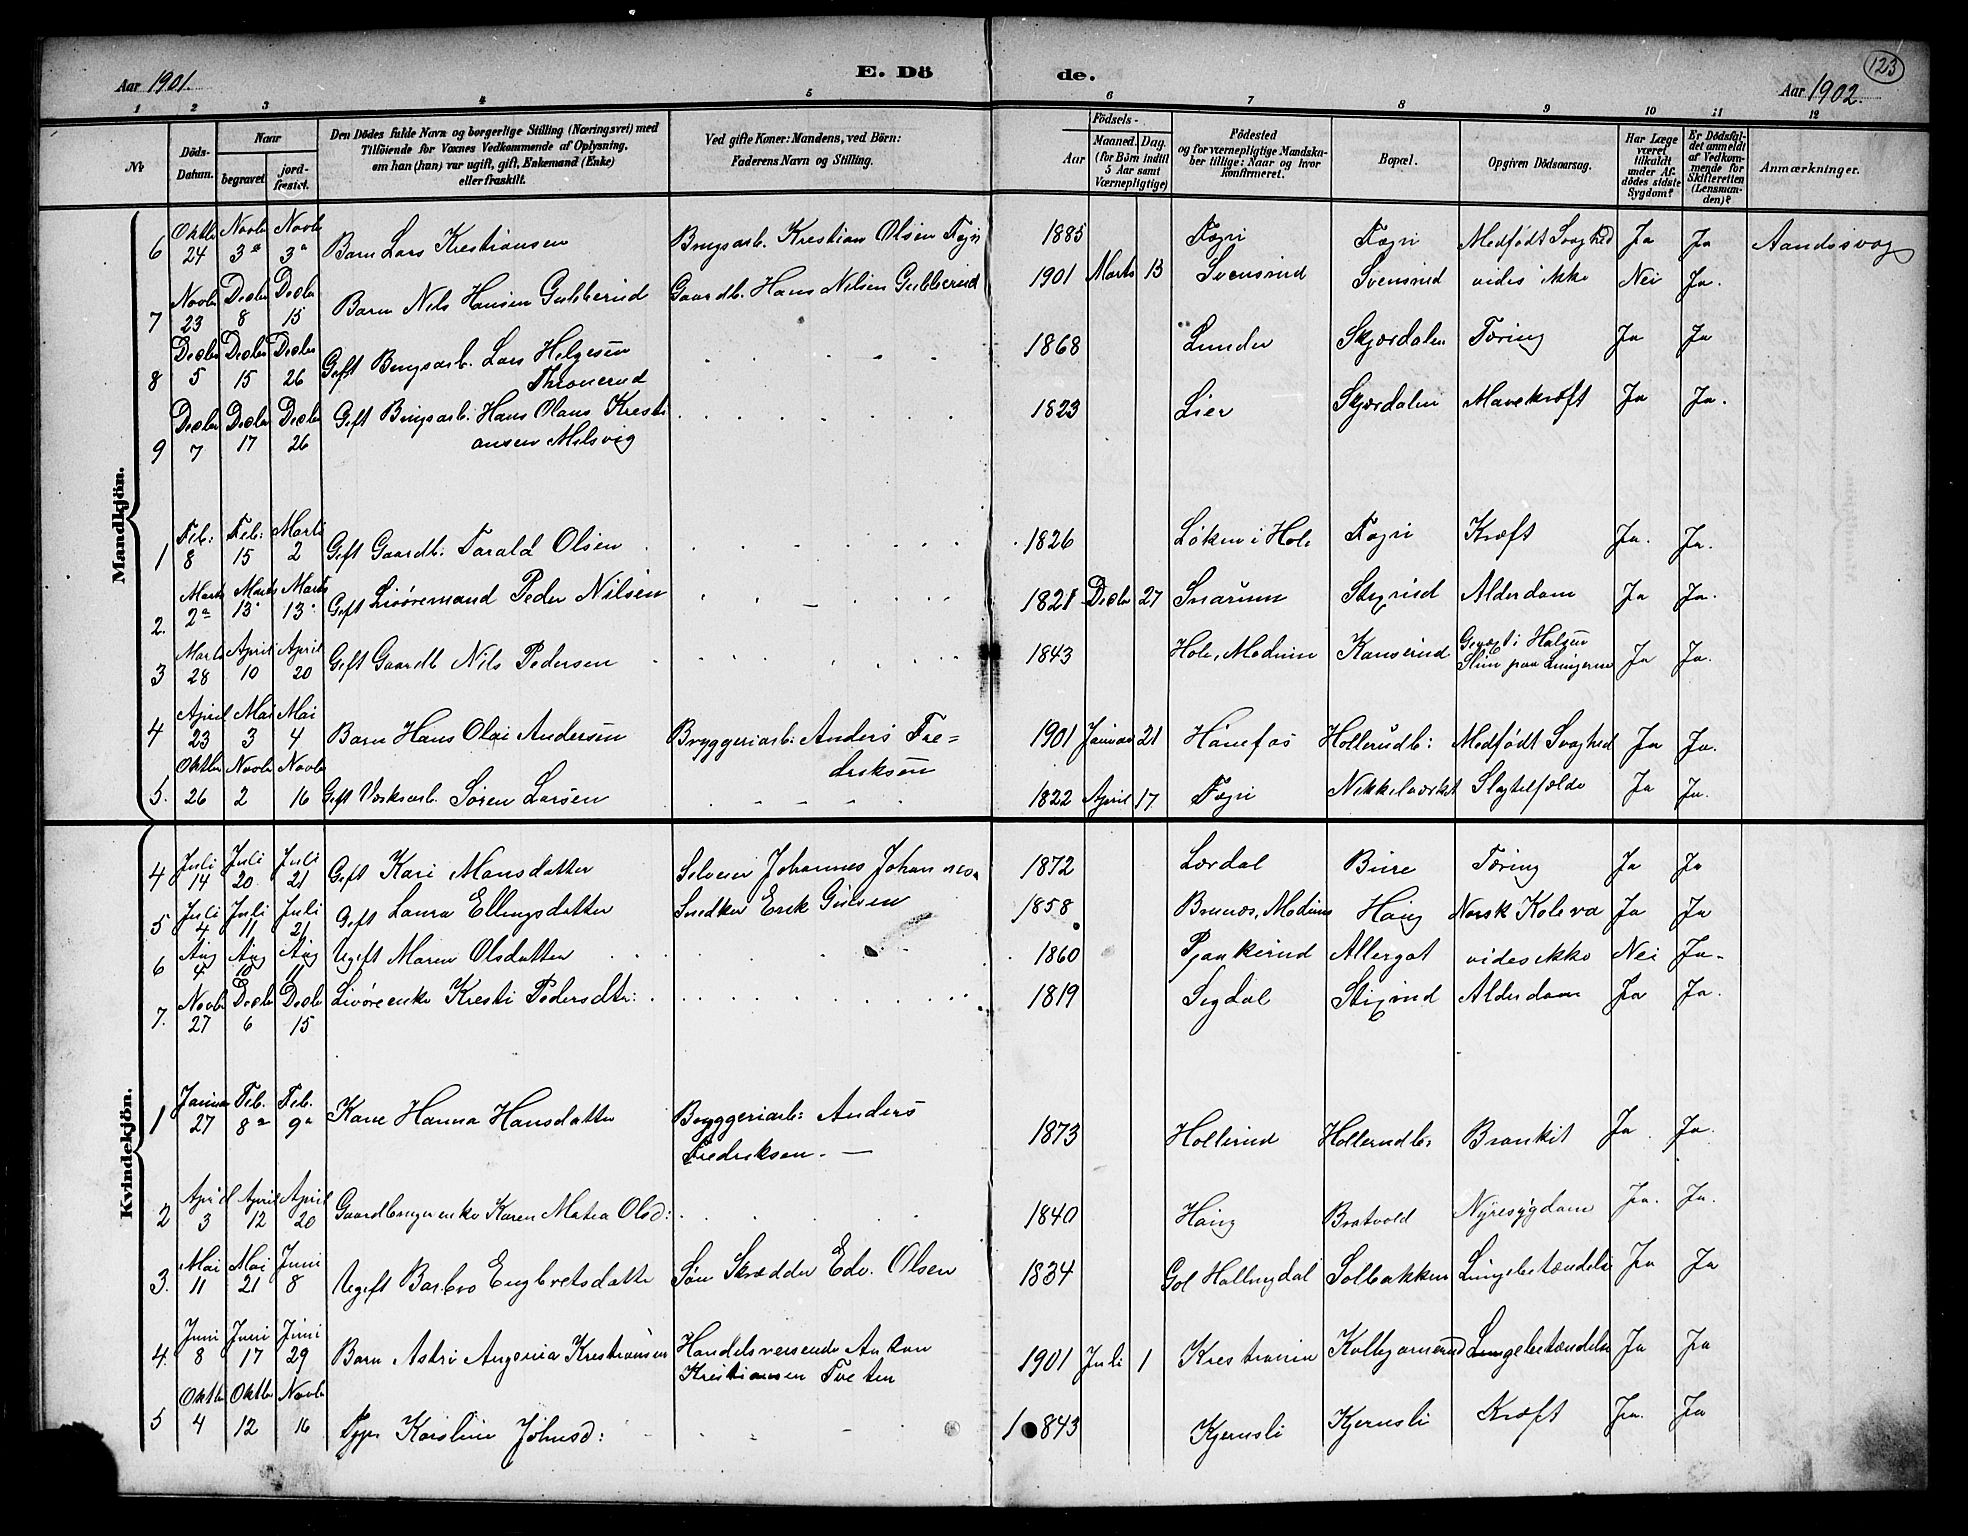 Aar 1901. E. Dö de. Aar 1902. 123
1 2 3 4 5 6 7 8 9 10 11 12
No Döds-Datum. Naar begravet jord-fæstet. Den Dödes fulde Navn og borgerlige Stilling (Næringsvei) med Tilföiende for Voxnes Vedkommende af Oplysning, om han (hun) var ugift, gift, Enkemand (Enke) eller fraskilt. Ved gifte Koner: Mandens, ved Börn: Faderens Navn og Stilling. Födsels- Aar Maaned. Dag. (for Börn indtil 5 Aar samt Værnepligtige) Födested og for værnepligtige Mandskaber tillige: Naar og hvor konfirmeret. Bopæl. Opgiven Dödsaarsag. Har Læge været tilkaldt under Afdödes sidste Sygdom? Er Dödsfaldet anmeldt af Vedkommende for Skifteretten (Lensmanden)? Anmærkninger.
Mandkjön.
6 Oktbr 24 Novbr 3 Novbr 3 Barn Lars Kristiansen Brugsarb. Kristian Olsen Fægri 1885 Fægri Fægri Medfødt Svaghed Ja Ja Aandssvag
7 Novbr 23 Decbr 8 Decbr 15 Barn Nils Hansen Gubberud Gaardb. Hans Nilsen Gubberud 1901 Marts 13 Svensrud Svensrud vides ikke Nei Ja.
8 Decbr 5 Decbr 15 Decbr 26 Gift Brugsarb. Lars Helgesen
Thronerud 1868 Lunder Skjørdalen Tæring Ja Ja
9 Decbr 7 Decbr 17 Decbr 26 Gift Brugsarb. Hans Olaus Kristi
ansen Melsvig 1823 Lier Skjørdalen Mavekræft Ja Ja.
1 Feb: 8 Feb: 15 Marts 2 Gift Gaardb: Tarald Olsen 1826 Løken i Hole Fægri Kræft Ja. Ja.
2. Marts 2 Marts 13 Marts 13 Gift Livøremand Peder Nilsen 1821 Decbr 27 Snarum Stixrud Alderdom Ja Ja.
3 Marts 28 April 10 April 20 Gift Gaardb Nils Pedersen 1843 Hole, Modum Kanserud Gevæxt i Halsen
Slim paa Lungerne Ja Ja.
4 April 23 Mai 3 Mai 4 Barn Hans Olai Andersen Bryggeriarb: Anders Fre=
driksen 1901 Januar 21 Hønefos Hollerudb: Medfødt Svaghed Ja Ja.
5. Oktbr 26 Novbr 2 Novbr 16 Gift Værksarb. Søren Larsen 1822 April 17 Fægri Nikkelværket Slagtilfælde Ja Ja.
Kvindekjön.
4 Juli 14 Juli 20 Juli 21 Gift Kari Monsdatter Selveier Johannes Johannes. 1872 Lærdal Bure Tæring Ja Ja
5 Juli 4 Juli 11 Juli 21 Gift Laura Ellingsdatter Snedker Erik Gulsen 1858 Brunæs, Modum Haug Norsk Kolera Ja Ja
6 Aug 4 Aug 10 Aug 11 Ugift Maren Olsdatter 1860 Pjaakerud Allergot vides ikke Nei Ja
7. Novbr 27 Decbr 6 Decbr 15 Livøreenke Kristi Pedersdtr: 1819 Sigdal Stixrud Alderdom Ja Ja.
1 Januar 27 Feb. 8 Feb. 9 Karen Hanna Hansdatter Bryggeriarb: Anders
Fredriksen. 1873 Hollerud Hollerudb: Bronkit Ja. Ja.
2 April 3 April 12 April 20 Gaardbrugerenke Karen Matea Olsd: 1840 Haug Bratvold Nyresygdom Ja. Ja.
3. Mai 11 Mai 21 Juni 8 Ugift Barbro Engbretsdatter Søn Skrædder Edv. Olsen 1834 Gol Hallingdal Solbakken Lungebetændelse Ja Ja
4. Juni 8 Juni 17 Juni 29 Barn Astri Angeria Kristiansen Handelsreisende Anton
Kristiansen Tveten 1901 Juli 1 Kristiania Kolbjørnerud Lungebetændelse Ja Ja
5 Oktbr 4 Oktbr 12 Novbr 16 Karoline Johnsd: 1843 Kjernsli Kjernsli Kræft Ja. Ja